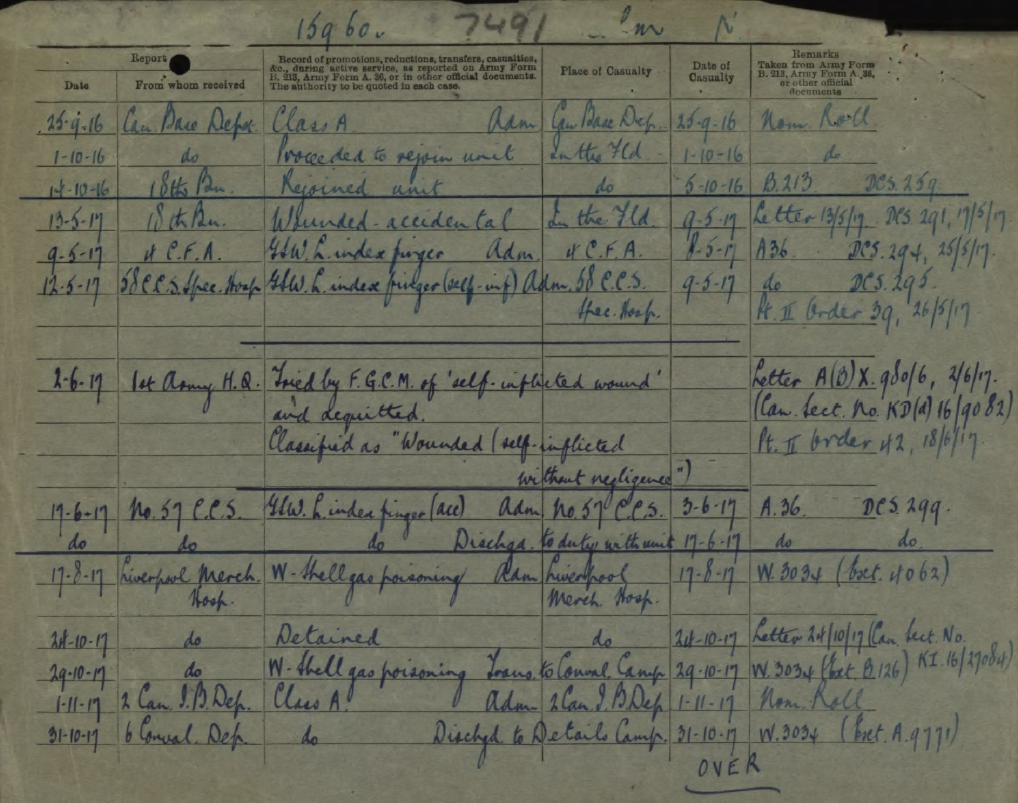 15960. 7491
Report
Date From whom received
Record of promotions, reductions, transfers, casualties, &c., during active service, as reported on Army Form B. 213, Army Form A. 36, or in other official documents. The authority to be quoted in each case.
Place of Casualty
Date of Casualty
Remarks Taken from Army Form B. 213, Army Form A. 36, or other official documents
25-9-16 Can Base Depot. Class A Adm Can Base Dep. 25-9-16 Nom. Roll
1-10-16 do Proceeded to rejoin unit In the Fld 1-10-16 do
14-10-16 18th Bn. Rejoined unit do 5-10-16 B.213. DCS.259.
13-5-17 18th Bn. Wounded-accidental In the Fld. 9-5-17 Letter 13/5/17. DCS.291, 17/5/17.
9-5-17 4 C.F.A. GSW. L. index finger Adm. 4 C.F.A. 8-5-17 A36. DCS.294, 25/5/17.
12-5-17 58 C.C.S. Spec. Hosp GSW. L. index finger (self-inf) Adm. 58 C.C.S. 9-5-17 do DCS.295.
Spec. Hosp. Pt. II Order 39, 26/5/17.
2-6-17 1st Army H.Q. Tried by F.G.C.M. of 'self-inflicted wound' Letter A(B) X. 980/6, 2/6/17.
and acquitted. (Can. Sect. No. KD(d) 16/9082)
Classified as "Wounded (self-inflicted Pt. II Order 42, 18/6/17.
without negligence")
17-6-17 No. 57 C.C.S. GSW. L. index finger (acc) Adm No. 57 C.C.S. 3-6-17 A.36. DCS.299.
do do do Dischgd. to duty with unit 17-6-17 do do.
17-8-17 Liverpool Merch. W-Shell gas poisoning Adm Liverpool 17-8-17 W.3034 (Ext. 4062)
Hosp. Merch. Hosp.
24-10-17 do Detained do 24-10-17 Letter 24/10/17 (Can. Sect. No.
KI. 16/27084)
29-10-17 do W-Shell gas poisoning Trans. to Conval. Camp 29-10-17 W.3034 (Ext. B.126)
1-11-17 2 Can. I.B. Dep. Class A. Adm 2 Can. I.B. Dep 1-11-17 Nom. Roll
31-10-17 6 Conval. Dep. do Dischgd to Details Camp. 31-10-17 W.3034 (Ext. A.9771)
OVER